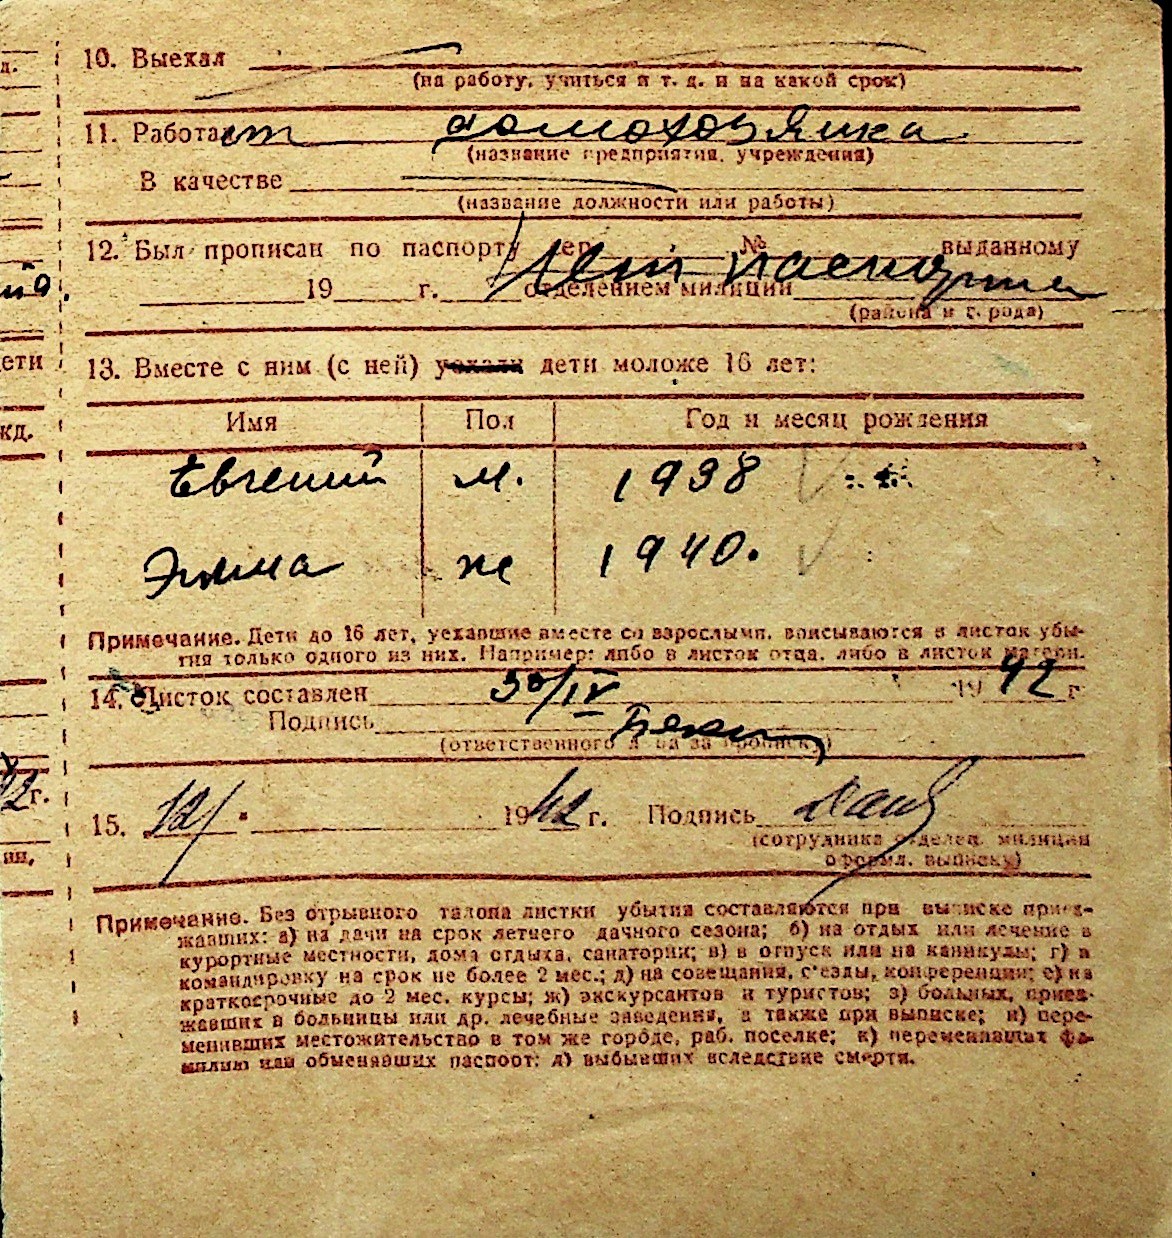 10. Выехал
(на работу, учиться и т. д. и на какой срок)
11. Работает домохозяйка
(название предприятия, учреждения)
В качестве
(название должности или работы)
12. Был прописан по паспорту сер. № выданному
Нет паспорта
19 г. отделением милиции
(района и города)
13. Вместе с ним (с ней) уехали дети моложе 16 лет:
Имя Пол Год и месяц рождения
Евгений м. 1938
Эмма ж 1940.
Примечание. Дети до 16 лет, уехавшие вместе со взрослыми, вписываются в листок убы-
тия только одного из них. Например: либо в листок отца, либо в листок матери.
14. Листок составлен 30/IV 1942 г
Подпись
(ответственного лица за прописку)
15. 12/ 1942 г. Подпись
(сотрудника отделен. милиции
оформл. выписку)
Примечание. Без отрывного талона листки убытия составляются при выписке приез-
жавших: а) на дачи на срок летнего дачного сезона; б) на отдых или лечение в
курортные местности, дома отдыха, санатории; в) в отпуск или на каникулы; г) в
командировку на срок не более 2 мес.; д) на совещания, с'езды, конференции; е) на
краткосрочные до 2 мес. курсы; ж) экскурсантов и туристов; з) больных, приез-
жавших в больницы или др. лечебные заведения, а также при выписке; и) пере-
менивших местожительство в том же городе, раб. поселке; к) переменивших фа-
милию или обменявших паспорт; л) выбывших вследствие смерти.
д.
дети
жд.
2г.